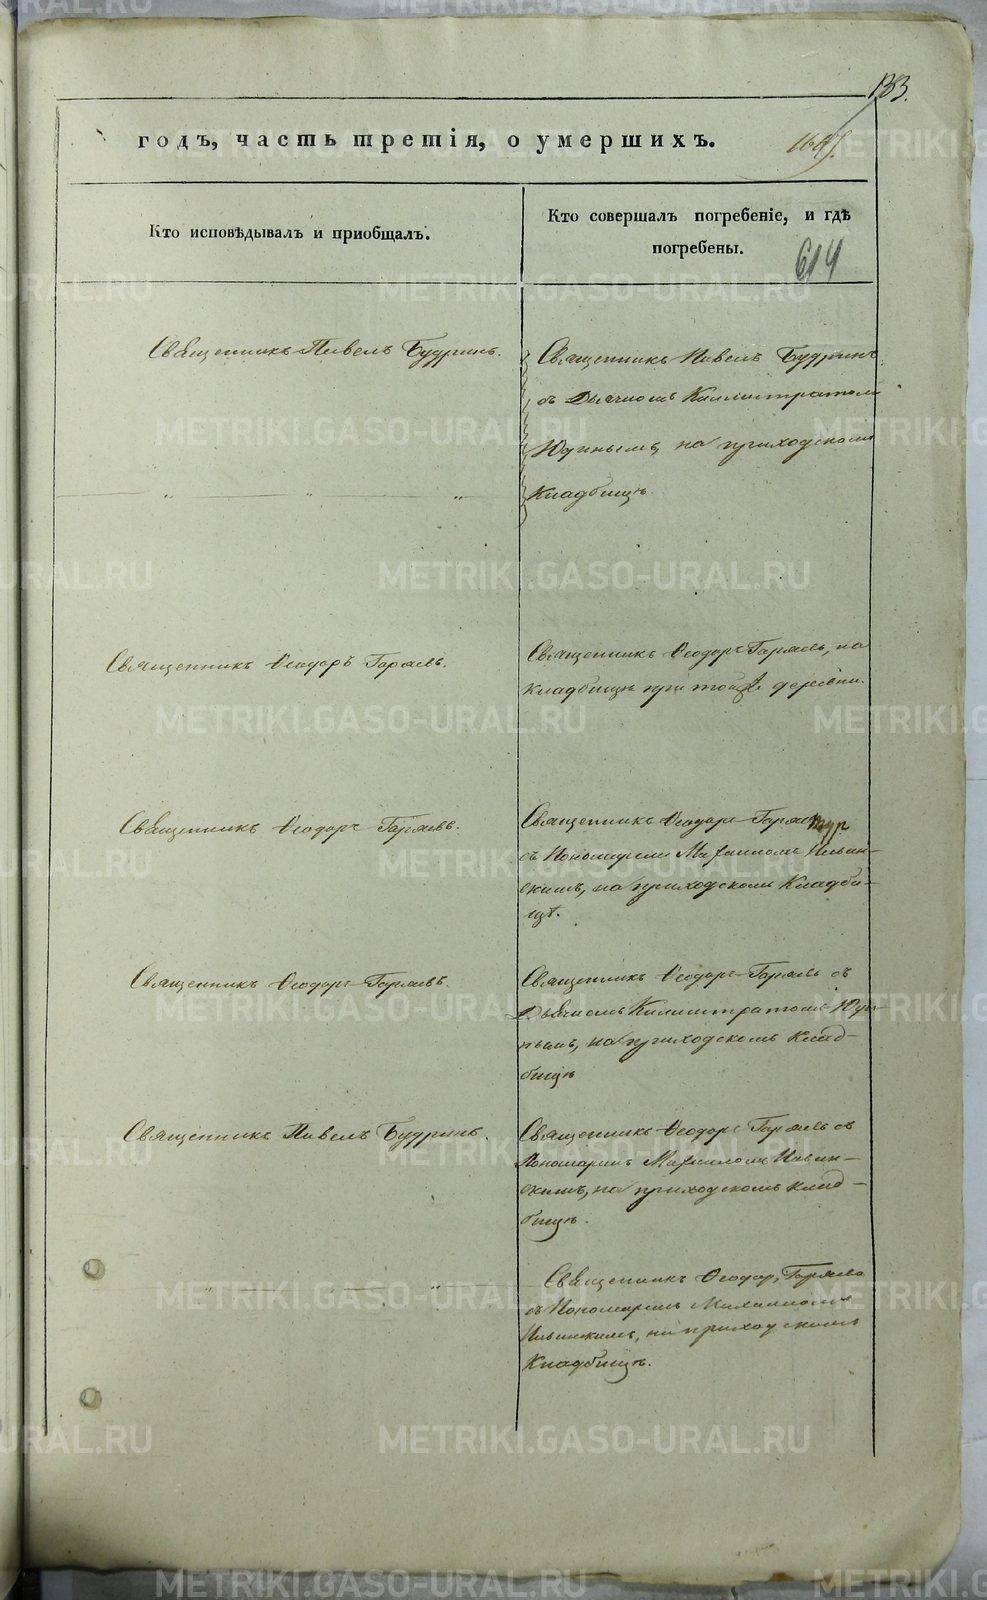 METRIKI.GASO-URAL.RU
133.
годъ, часть третія, о умершихъ.
Кто исповѣдывалъ и приобщалъ.
Кто совершалъ погребеніе, и гдѣ
погребены.
614
Священникъ Павелъ Будринъ.
Священникъ Павелъ Будринъ
съ Дьячкомъ Каллистратомъ
Юдинымъ, на приходскомъ
Кладбищѣ.
Священникъ Ѳеодоръ Гаряевъ.
Священникъ Ѳеодоръ Гаряевъ, на
кладбищѣ при тойже деревни.
Священникъ Ѳеодоръ Гаряевъ.
Священникъ Ѳеодоръ Гаряевъ
съ Пономаремъ Михаиломъ Ильин-
скимъ, на приходскомъ Кладби-
щѣ.
Священникъ Ѳеодоръ Гаряевъ.
Священникъ Ѳеодоръ Гаряевъ съ
Дьячкомъ Каллистратомъ Юди-
нымъ, на приходскомъ Клад-
бищѣ
Священникъ Павелъ Будринъ.
Священникъ Ѳеодоръ Гаряевъ съ
Пономаремъ Михаиломъ Ильин-
скимъ, на приходскомъ клад-
бищѣ.
Священникъ Ѳеодоръ Гаряевъ
съ Пономаремъ Михаиломъ
Ильинскимъ, на приходскомъ
Кладбищѣ.